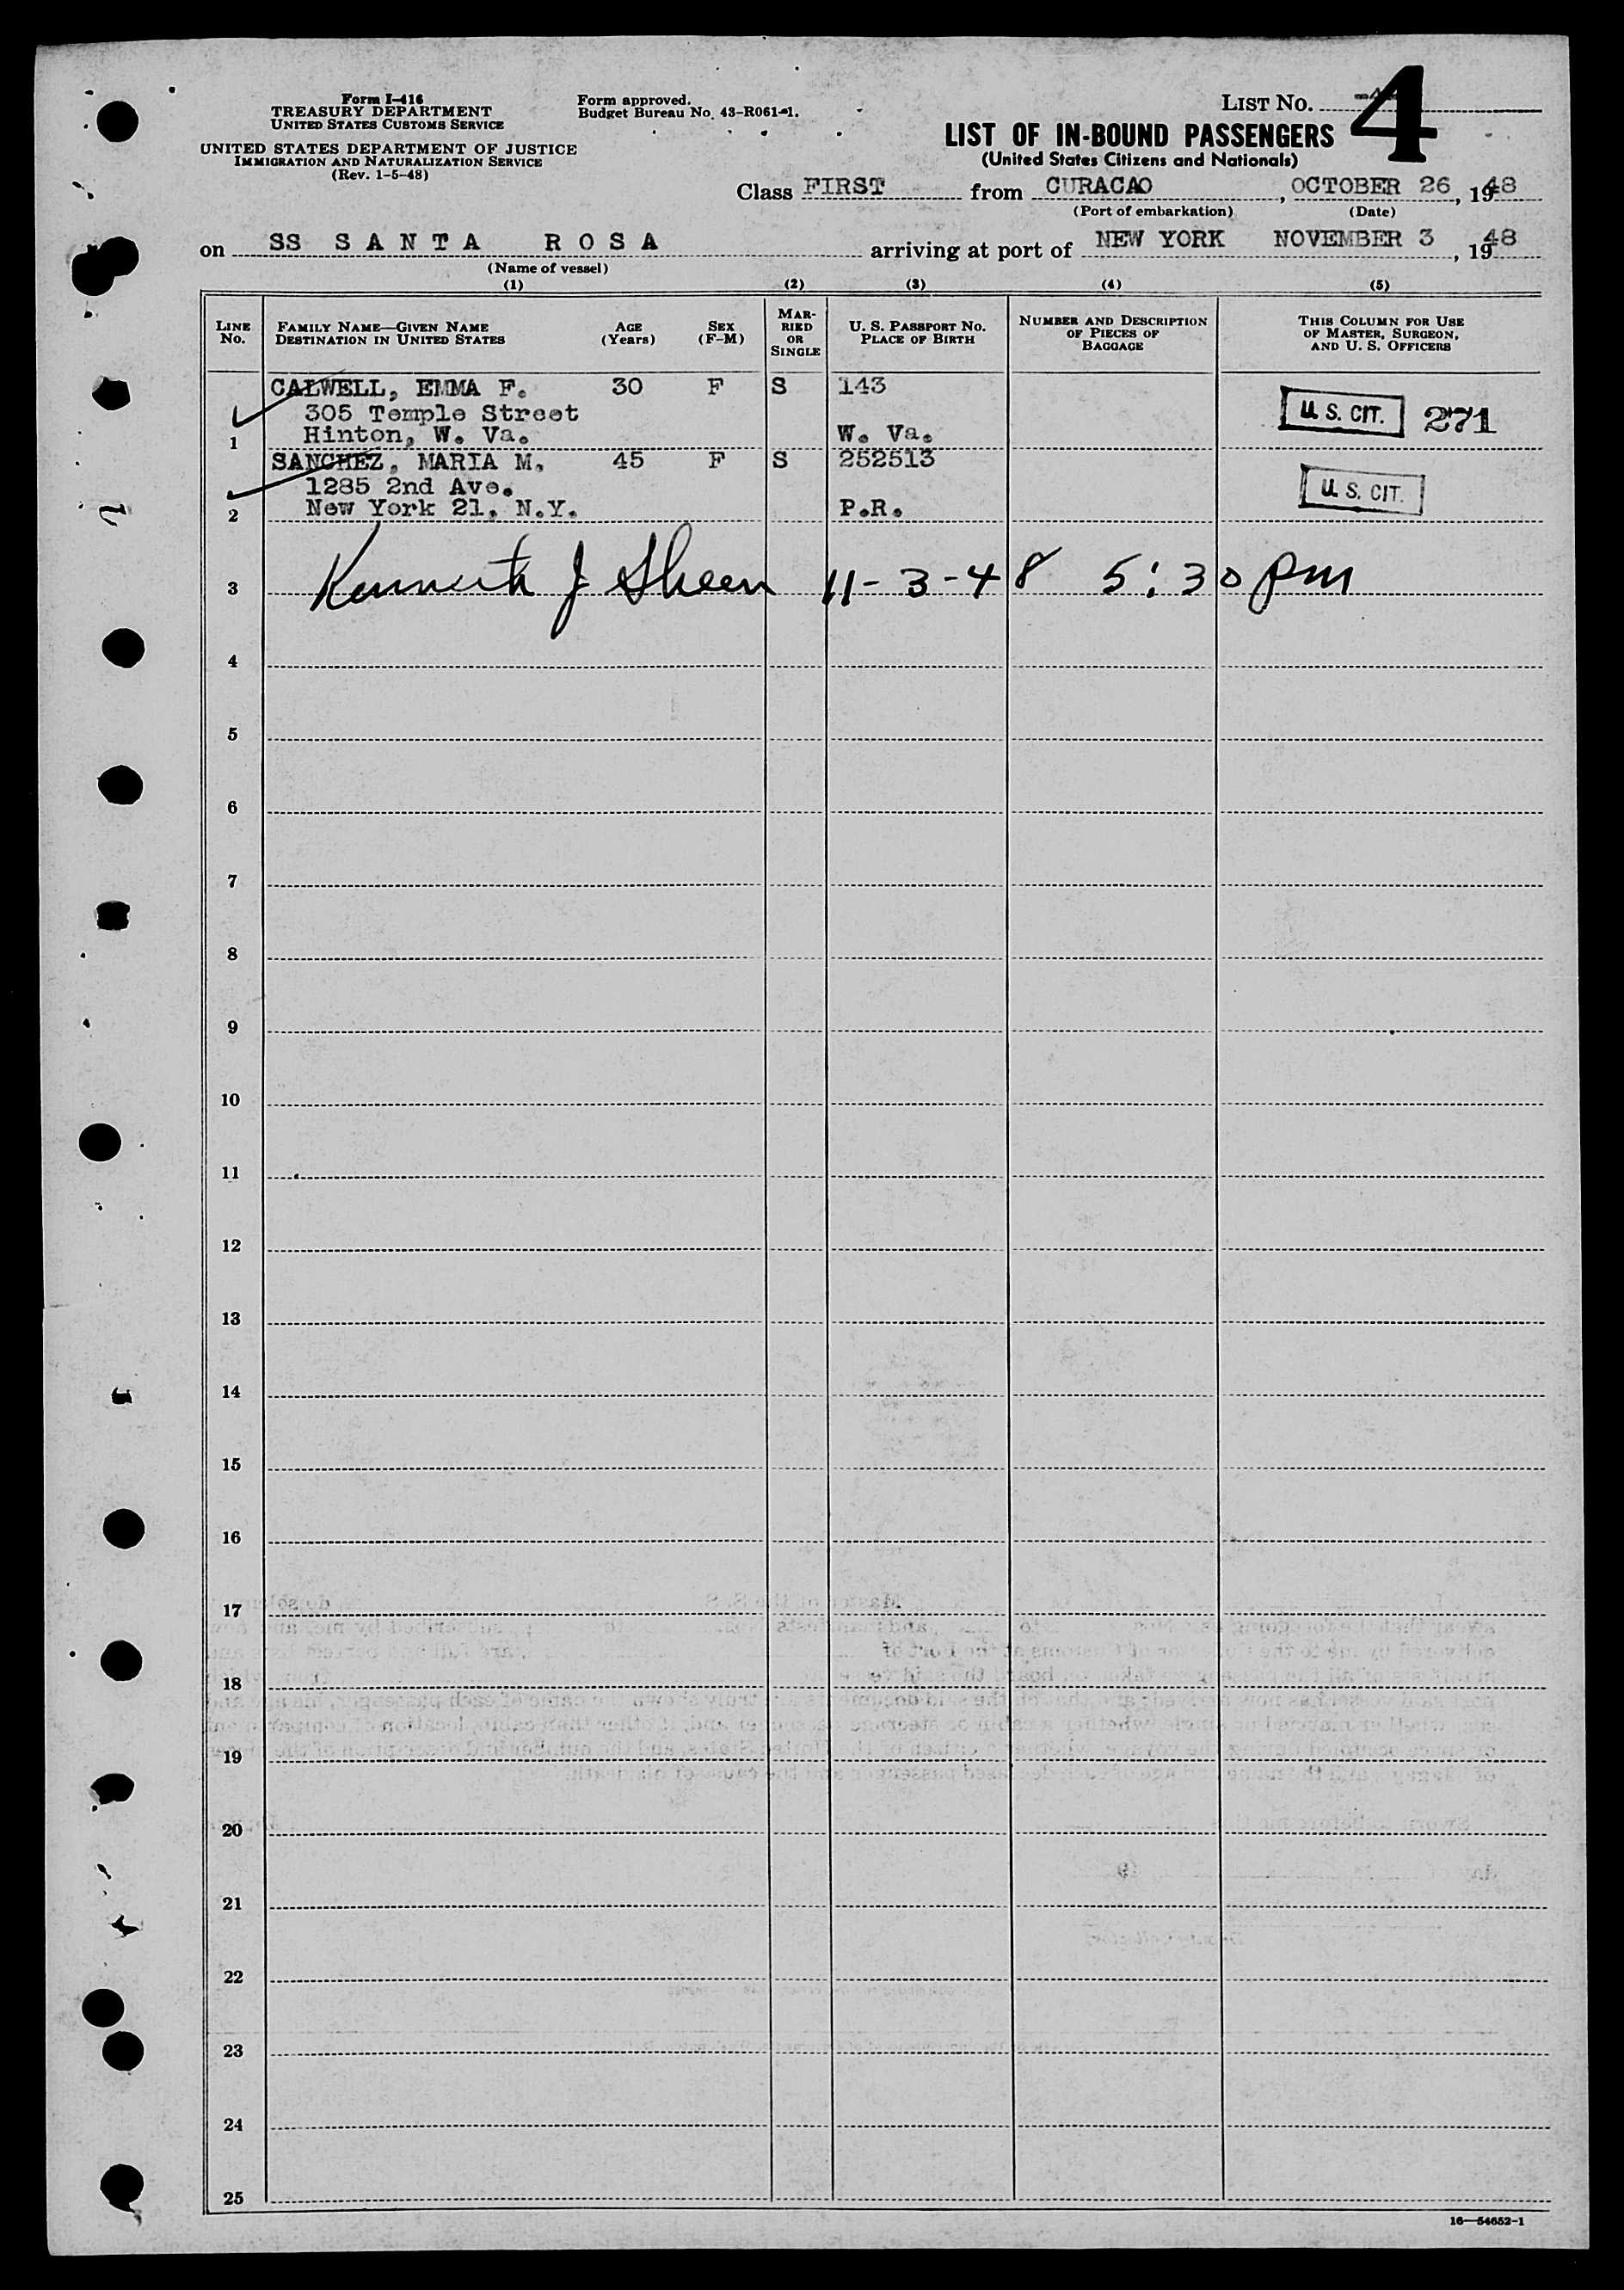 Form I-416
TREASURY DEPARTMENT
UNITED STATES CUSTOMS SERVICE
UNITED STATES DEPARTMENT OF JUSTICE
IMMIGRATION AND NATURALIZATION SERVICE
(Rev. 1-5-48)
Form approved.
Budget Bureau No. 43-R061-1.
LIST No. 4
LIST OF IN-BOUND PASSENGERS
(United States Citizens and Nationals)
Class FIRST from CURACAO, OCTOBER 26, 1948
(Port of embarkation) (Date)
on SS SANTA ROSA arriving at port of NEW YORK NOVEMBER 3, 1948
(Name of vessel)
(1) (2) (3) (4) (5)
LINE No. FAMILY NAME—GIVEN NAME DESTINATION IN UNITED STATES AGE (Years) SEX (F-M) MARRIED OR SINGLE U. S. PASSPORT No. PLACE OF BIRTH NUMBER AND DESCRIPTION OF PIECES OF BAGGAGE THIS COLUMN FOR USE OF MASTER, SURGEON, AND U. S. OFFICERS
CALWELL, EMMA F. 30 F S 143
305 Temple Street U. S. CIT. 271
1 Hinton, W. Va. W. Va.
SANCHEZ, MARIA M. 45 F S 252513
1285 2nd Ave. U. S. CIT.
2 New York 21, N.Y. P.R.
3 Kenneth J Sheen 11-3-48 5:30 pm
4
5
6
7
8
9
10
11
12
13
14
15
16
17
18
19
20
21
22
23
24
25
16—54652-1